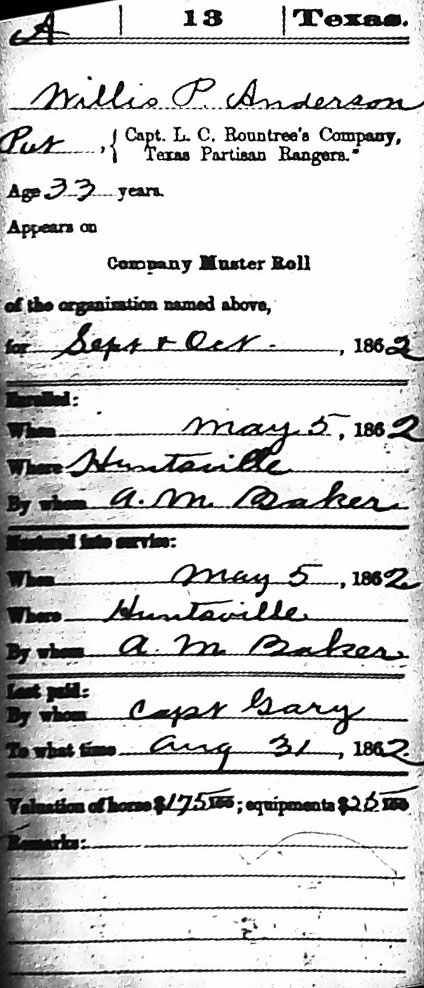 A | 13 | Texas.
Willis P. Anderson
Pvt, { Capt. L. C. Rountree's Company,
Texas Partisan Rangers.*
Age 33 years.
Appears on
Company Muster Roll
of the organization named above,
for Sept & Oct., 1862
Enrolled:
When May 5, 1862
Where Huntsville
By whom A. M. Baker
Mustered into service:
When May 5, 1862
Where Huntsville
By whom A. M. Baker
Last paid:
By whom Capt Gary
To what time Aug 31, 1862
Valuation of horse $175 100; equipments $25 100
Remarks: